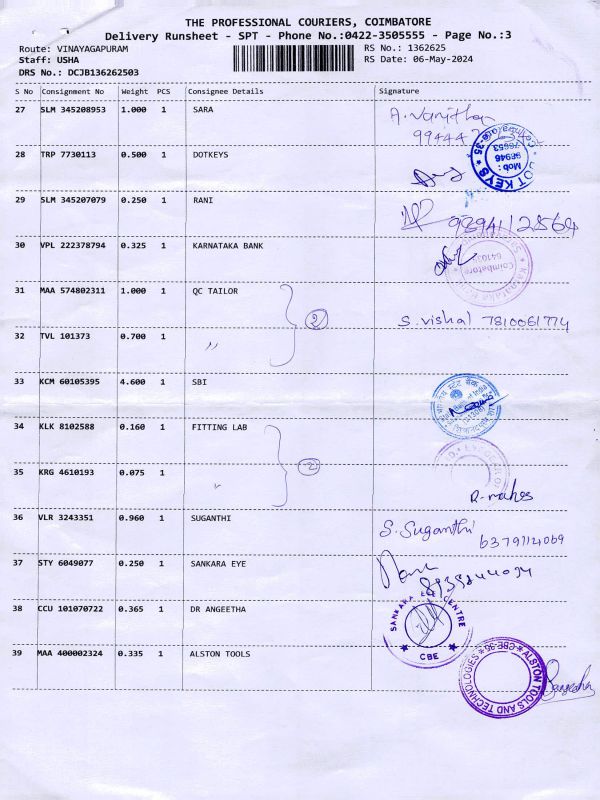 THE PROFESSIONAL COURIERS, COIMBATORE
Delivery Runsheet - SPT - Phone No.:0422-3505555 - Page No.:3
Route: VINAYAGAPURAM RS No.: 1362625
Staff: USHA RS Date: 06-May-2024
DRS No.: DCJB136262503
S No Consignment No Weight PCS Consignee Details Signature
27 SLM 345208953 1.000 1 SARA A. Vanitha
99444
28 TRP 7730113 0.500 1 DOTKEYS
DOT KEYS
Mob :
98946
76653
29 SLM 345207079 0.250 1 RANI 9894112564
30 VPL 222378794 0.325 1 KARNATAKA BANK
Karnataka
Coimbatore
31 MAA 574802311 1.000 1 QC TAILOR
2 S. vishal 7810061774
32 TVL 101373 0.700 1 〃
33 KCM 60105395 4.600 1 SBI
34 KLK 8102588 0.160 1 FITTING LAB
2
35 KRG 4610193 0.075 1 〃 R. mahes
36 VLR 3243351 0.960 1 SUGANTHI S. Suganthi
6379114069
37 STY 6049077 0.250 1 SANKARA EYE
38 CCU 101070722 0.365 1 DR ANGEETHA
SANKARA EYE CENTRE
CBE
39 MAA 400002324 0.335 1 ALSTON TOOLS
ALSTON TOOLS AND TECHNOLOGIES